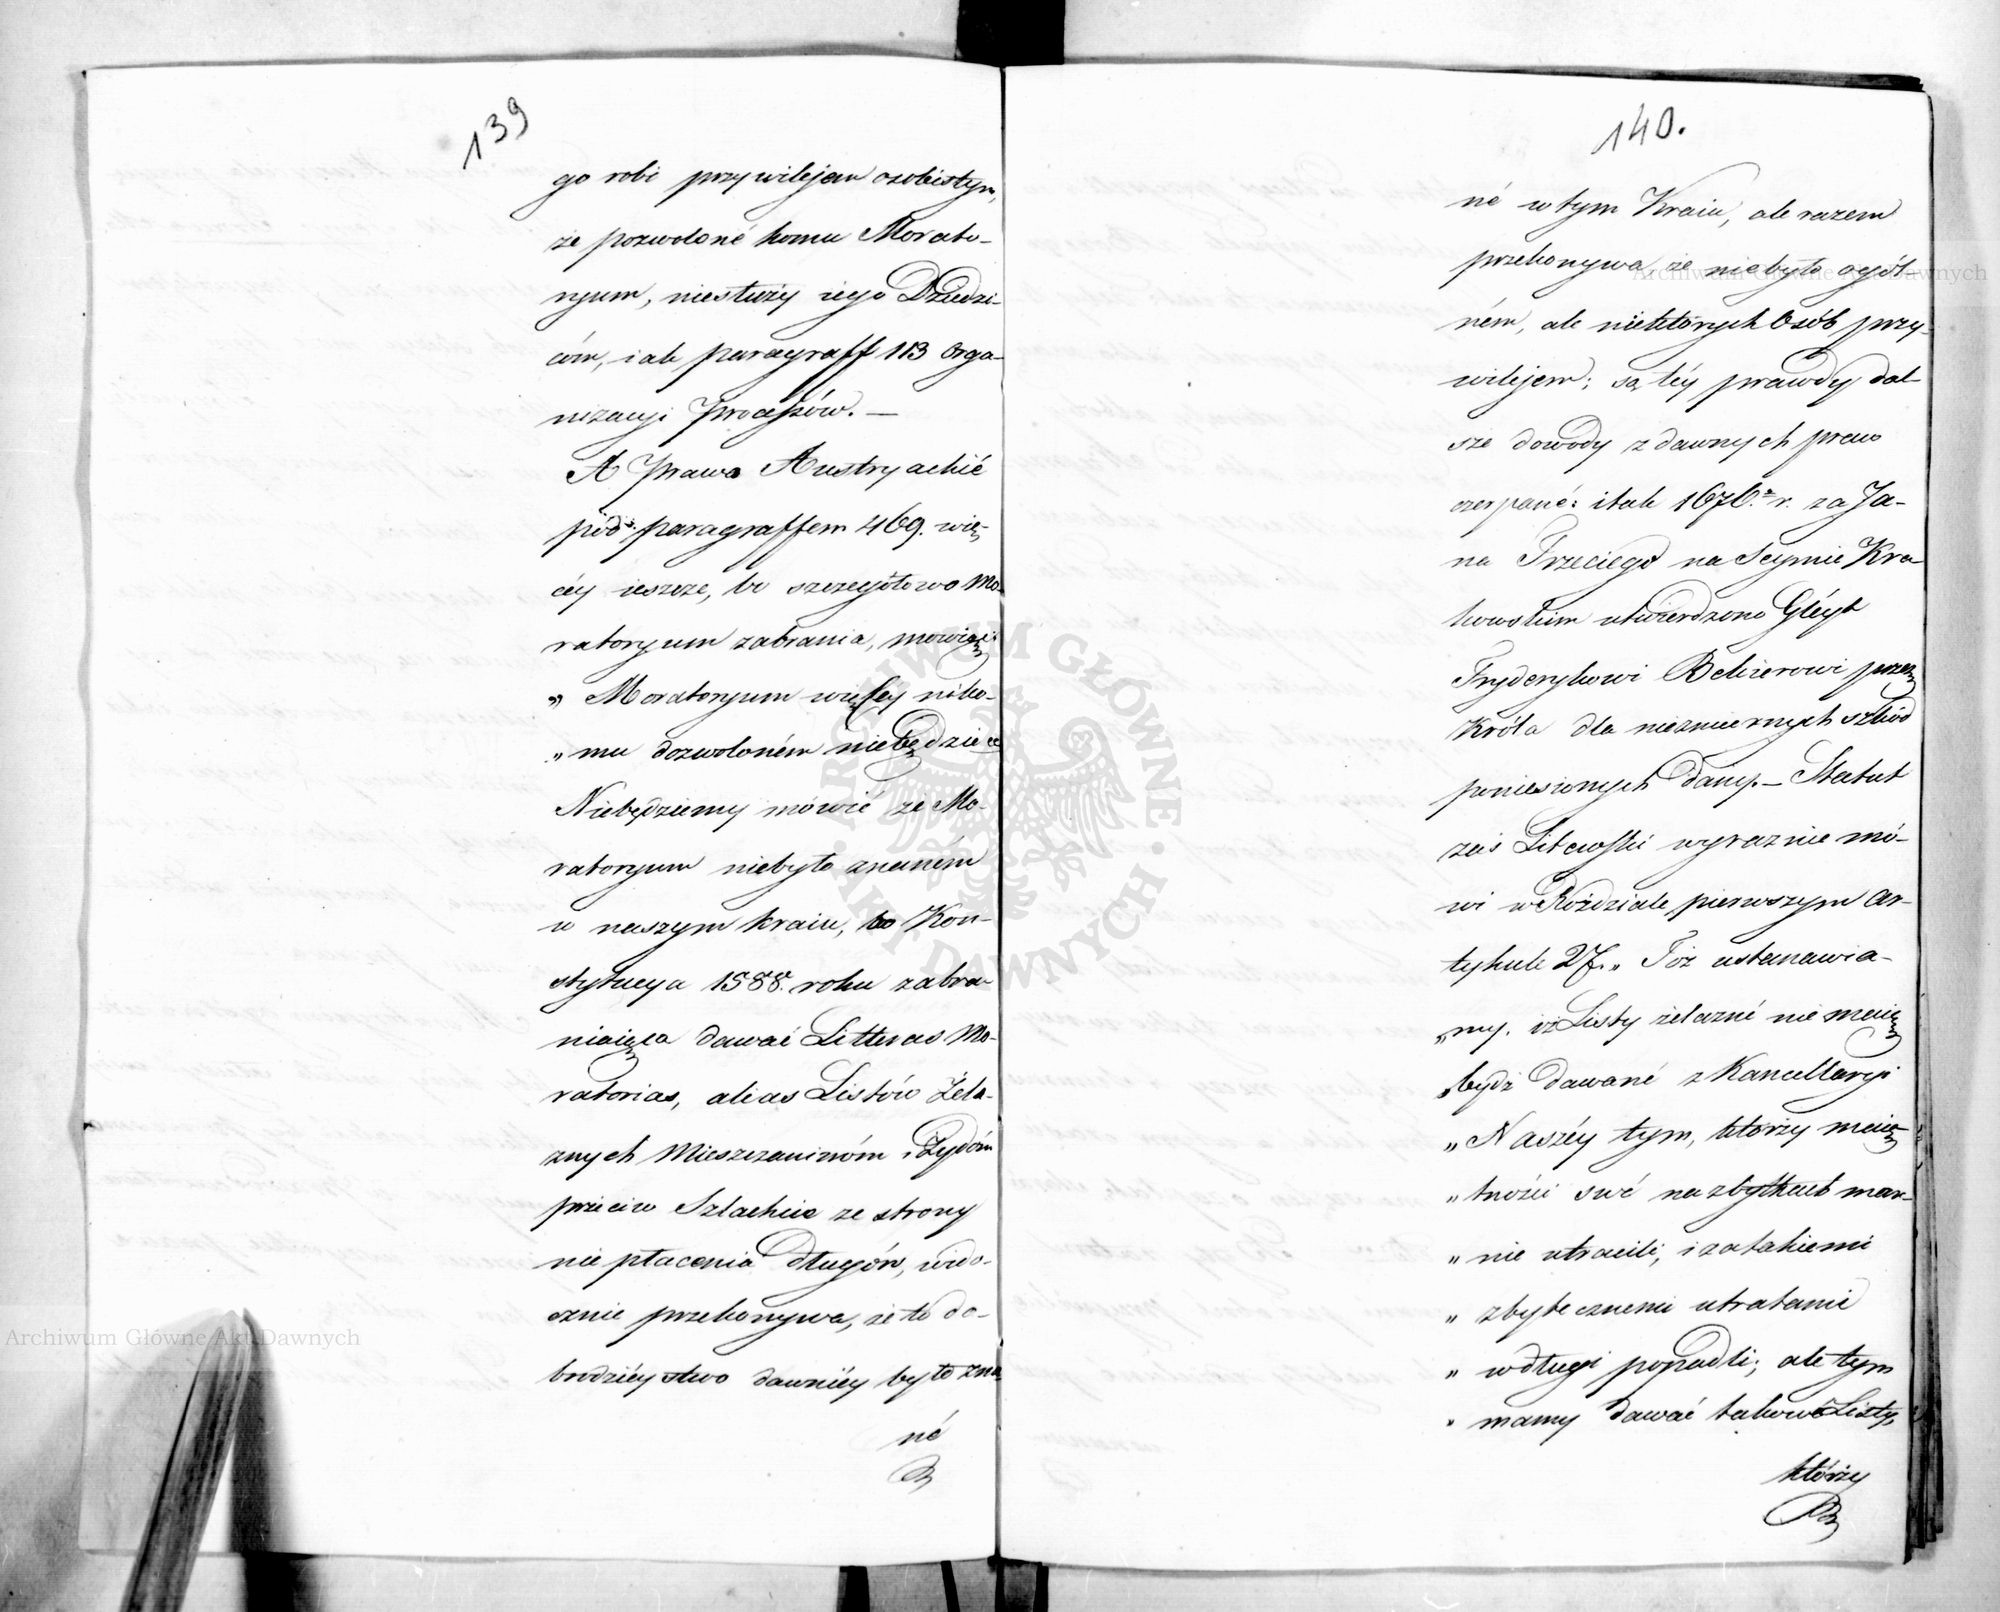 139
go robi przywilejem osobistym,
że pozwoloné komu Morato-
ryum, niesłuży iego Dziedzi-
cóm, iak paragraff 113 Orga-
nizacyi Processów. —
A Prawa Austryackié
pod paragraffem 469. wię-
céy ieszcze, bo szczegółowo Mo-
ratoryum zabrania, mowiąc:
„ Moratoryum więcey niko-
„ mu dozwoloném niebędziee
Niebędziemy mówić że Mo-
ratoryum niebyło znaném
w naszym kraiu, bo Kon-
stytucya 1588. roku zabra-
niaiąca dawać Litteras Mo-
ratorias, alias Listów Żela-
znych Mieszczaninóm i Żydóm
przeciw Szlachcie ze strony
nie płacenia Długów, wido-
cznie przekonywa, że to do-
brodziéystwo dawniéy było zna
né
140.
né w tym Kraiu, ale razem
przekonywa że niebyło ogól-
ném, ale niektórych Osób przy-
wilejem; są téy prawdy dal-
sze dowody z dawnych praw
czerpané: i tak 1676. r. za Ja-
na Trzeciego na Seymie Kra-
kowskim utwierdzono Gléyt
Fryderykowi Bekierowi przez
Króla dla niezmiernych szkód
poniesionych Dany. — Statut
zaś Litewski wyraznie mó-
wi w Rozdziale pierwszym Ar-
tykule 27. „ Toż ustanawia-
„ my, iż Listy żelazné nie maią
„ bydź dawané z Kancellaryi
„ Naszéy tym, którzy maię-
„ tności swé na zbytkach mar-
„ nie utracili, i za takiemi
„ zbytecznemi utratami
„ w długi popadli; ale tym
„ mamy dawać takowé Listy,
którzy